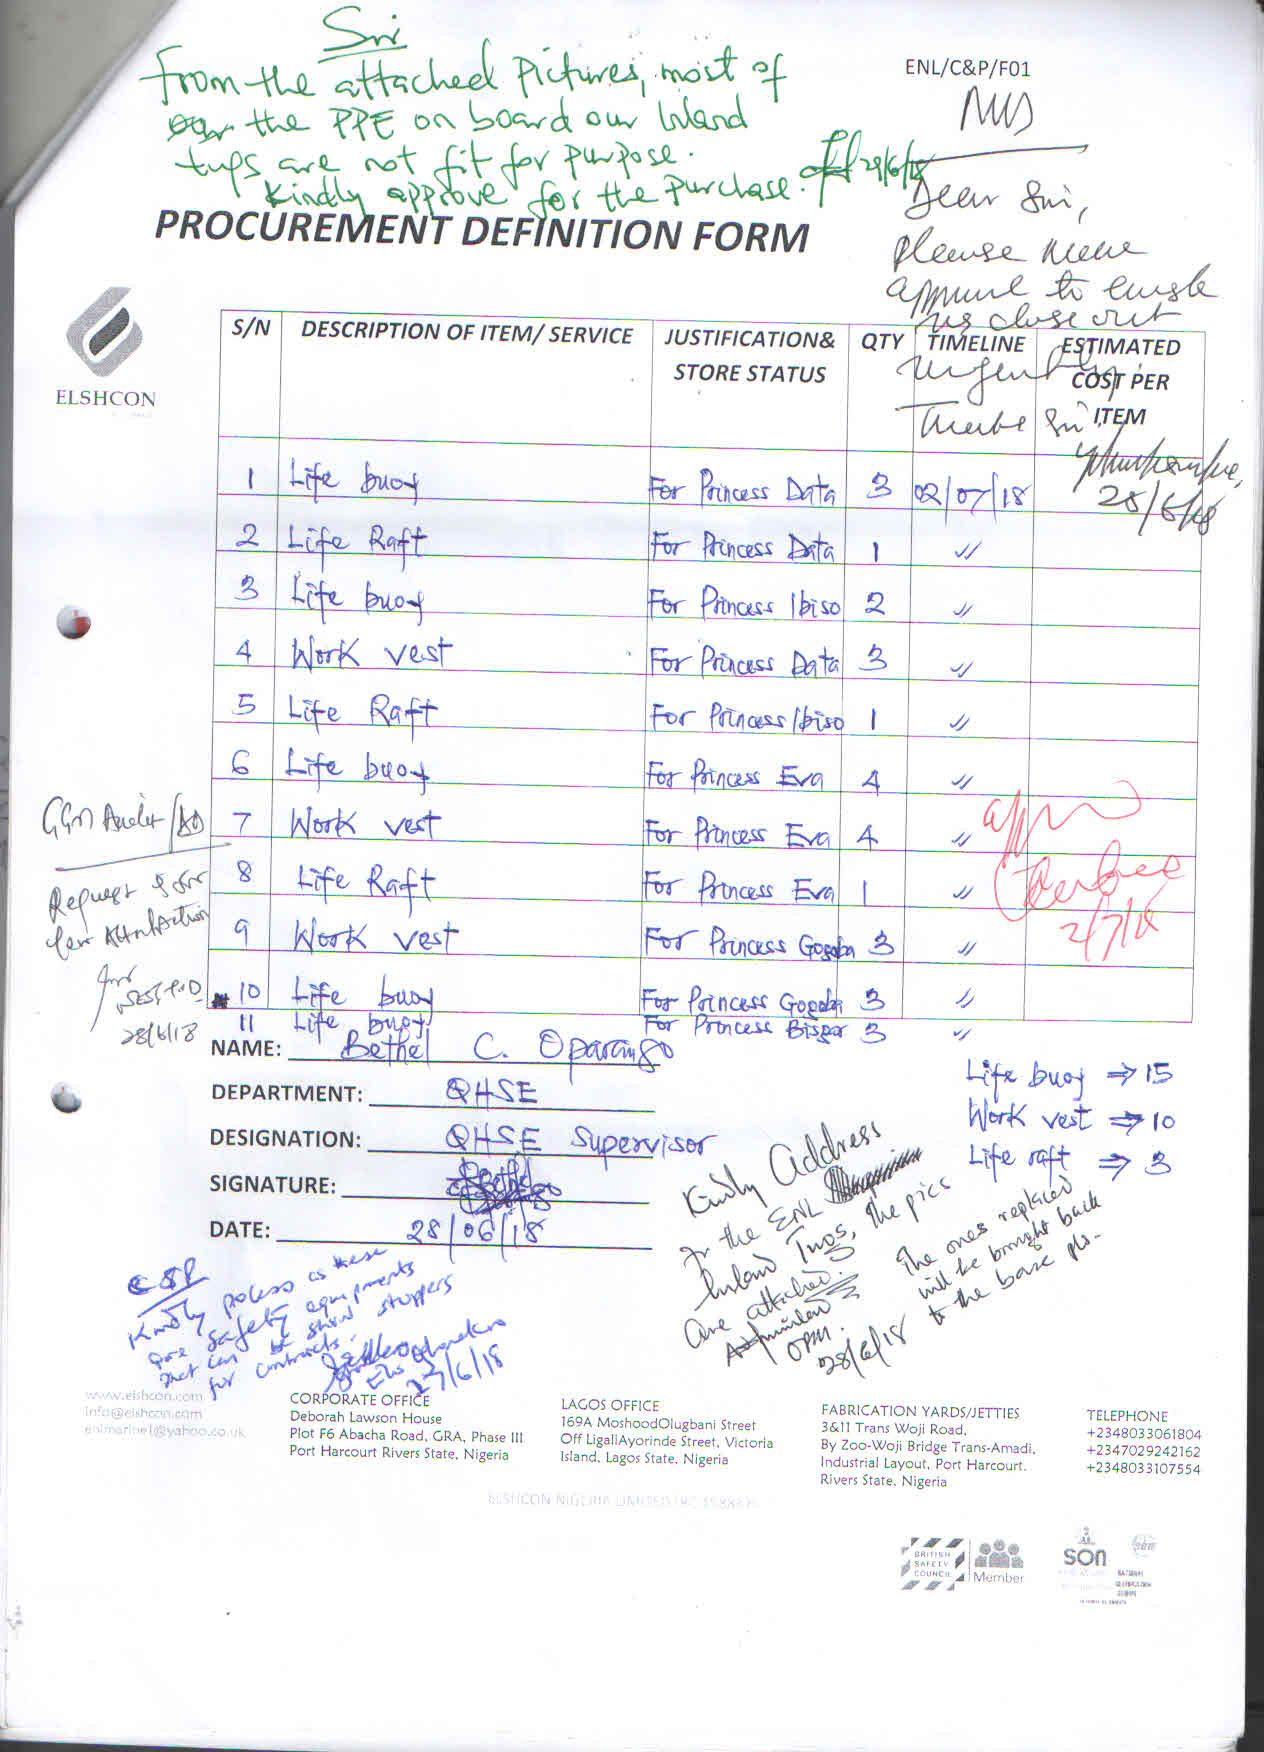 Sir
From the attached Pictures, most of
the PPE on board our Inland
tugs are not fit for purpose.
Kindly approve for the purchase.
29/6/18
ENL/C&P/F01
MD
Dear Sir,
please
to
us close out
urgently.
Sir.
28/6/18
PROCUREMENT DEFINITION FORM
ELSHCON
S/N DESCRIPTION OF ITEM/ SERVICE JUSTIFICATION& STORE STATUS QTY TIMELINE ESTIMATED COST PER ITEM
1 Life buoy For Princess Data 3 02/07/18
2 Life Raft For Princess Data 1 〃
3 Life buoy For Princess Ibiso 2 〃
4 Work vest For Princess Data 3 〃
5 Life Raft For Princess Ibiso 1 〃
6 Life buoy For Princess Eva 4 〃
7 Work vest For Princess Eva 4 〃
8 Life Raft For Princess Eva 1 〃
9 Work vest For Princess Gogoba 3 〃
10 Life buoy For Princess Gogoba 3 〃
11 Life buoy For Princess Bisga 3 〃
2/7/18
Request
28/6/18
NAME: Bethel C. Oparango
DEPARTMENT: QHSE
DESIGNATION: QHSE Supervisor
SIGNATURE:
DATE: 28/06/18
Life buoy ⇒ 15
Work vest ⇒ 10
Life raft ⇒ 3
Kindly Address
for the ENL
Inland Tugs, the pics
are attached.
OPM.
28/6/18
The ones replaced
will be brought back
to the base pls.
C&P
Kindly process as these
are safety equipments
that can be show stoppers
for contracts.
27/6/18
www.elshcon.com
info@elshcon.com
enlmarine1@yahoo.co.uk
CORPORATE OFFICE
Deborah Lawson House
Plot F6 Abacha Road, GRA, Phase III
Port Harcourt Rivers State, Nigeria
LAGOS OFFICE
169A MoshoodOlugbani Street
Off LigaliAyorinde Street, Victoria
Island, Lagos State, Nigeria
FABRICATION YARDS/JETTIES
3&11 Trans Woji Road,
By Zoo-Woji Bridge Trans-Amadi,
Industrial Layout, Port Harcourt.
Rivers State, Nigeria
TELEPHONE
+2348033061804
+2347029242162
+2348033107554
ELSHCON NIGERIA LIMITED
BRITISH
SAFETY
COUNCIL
Member
SON